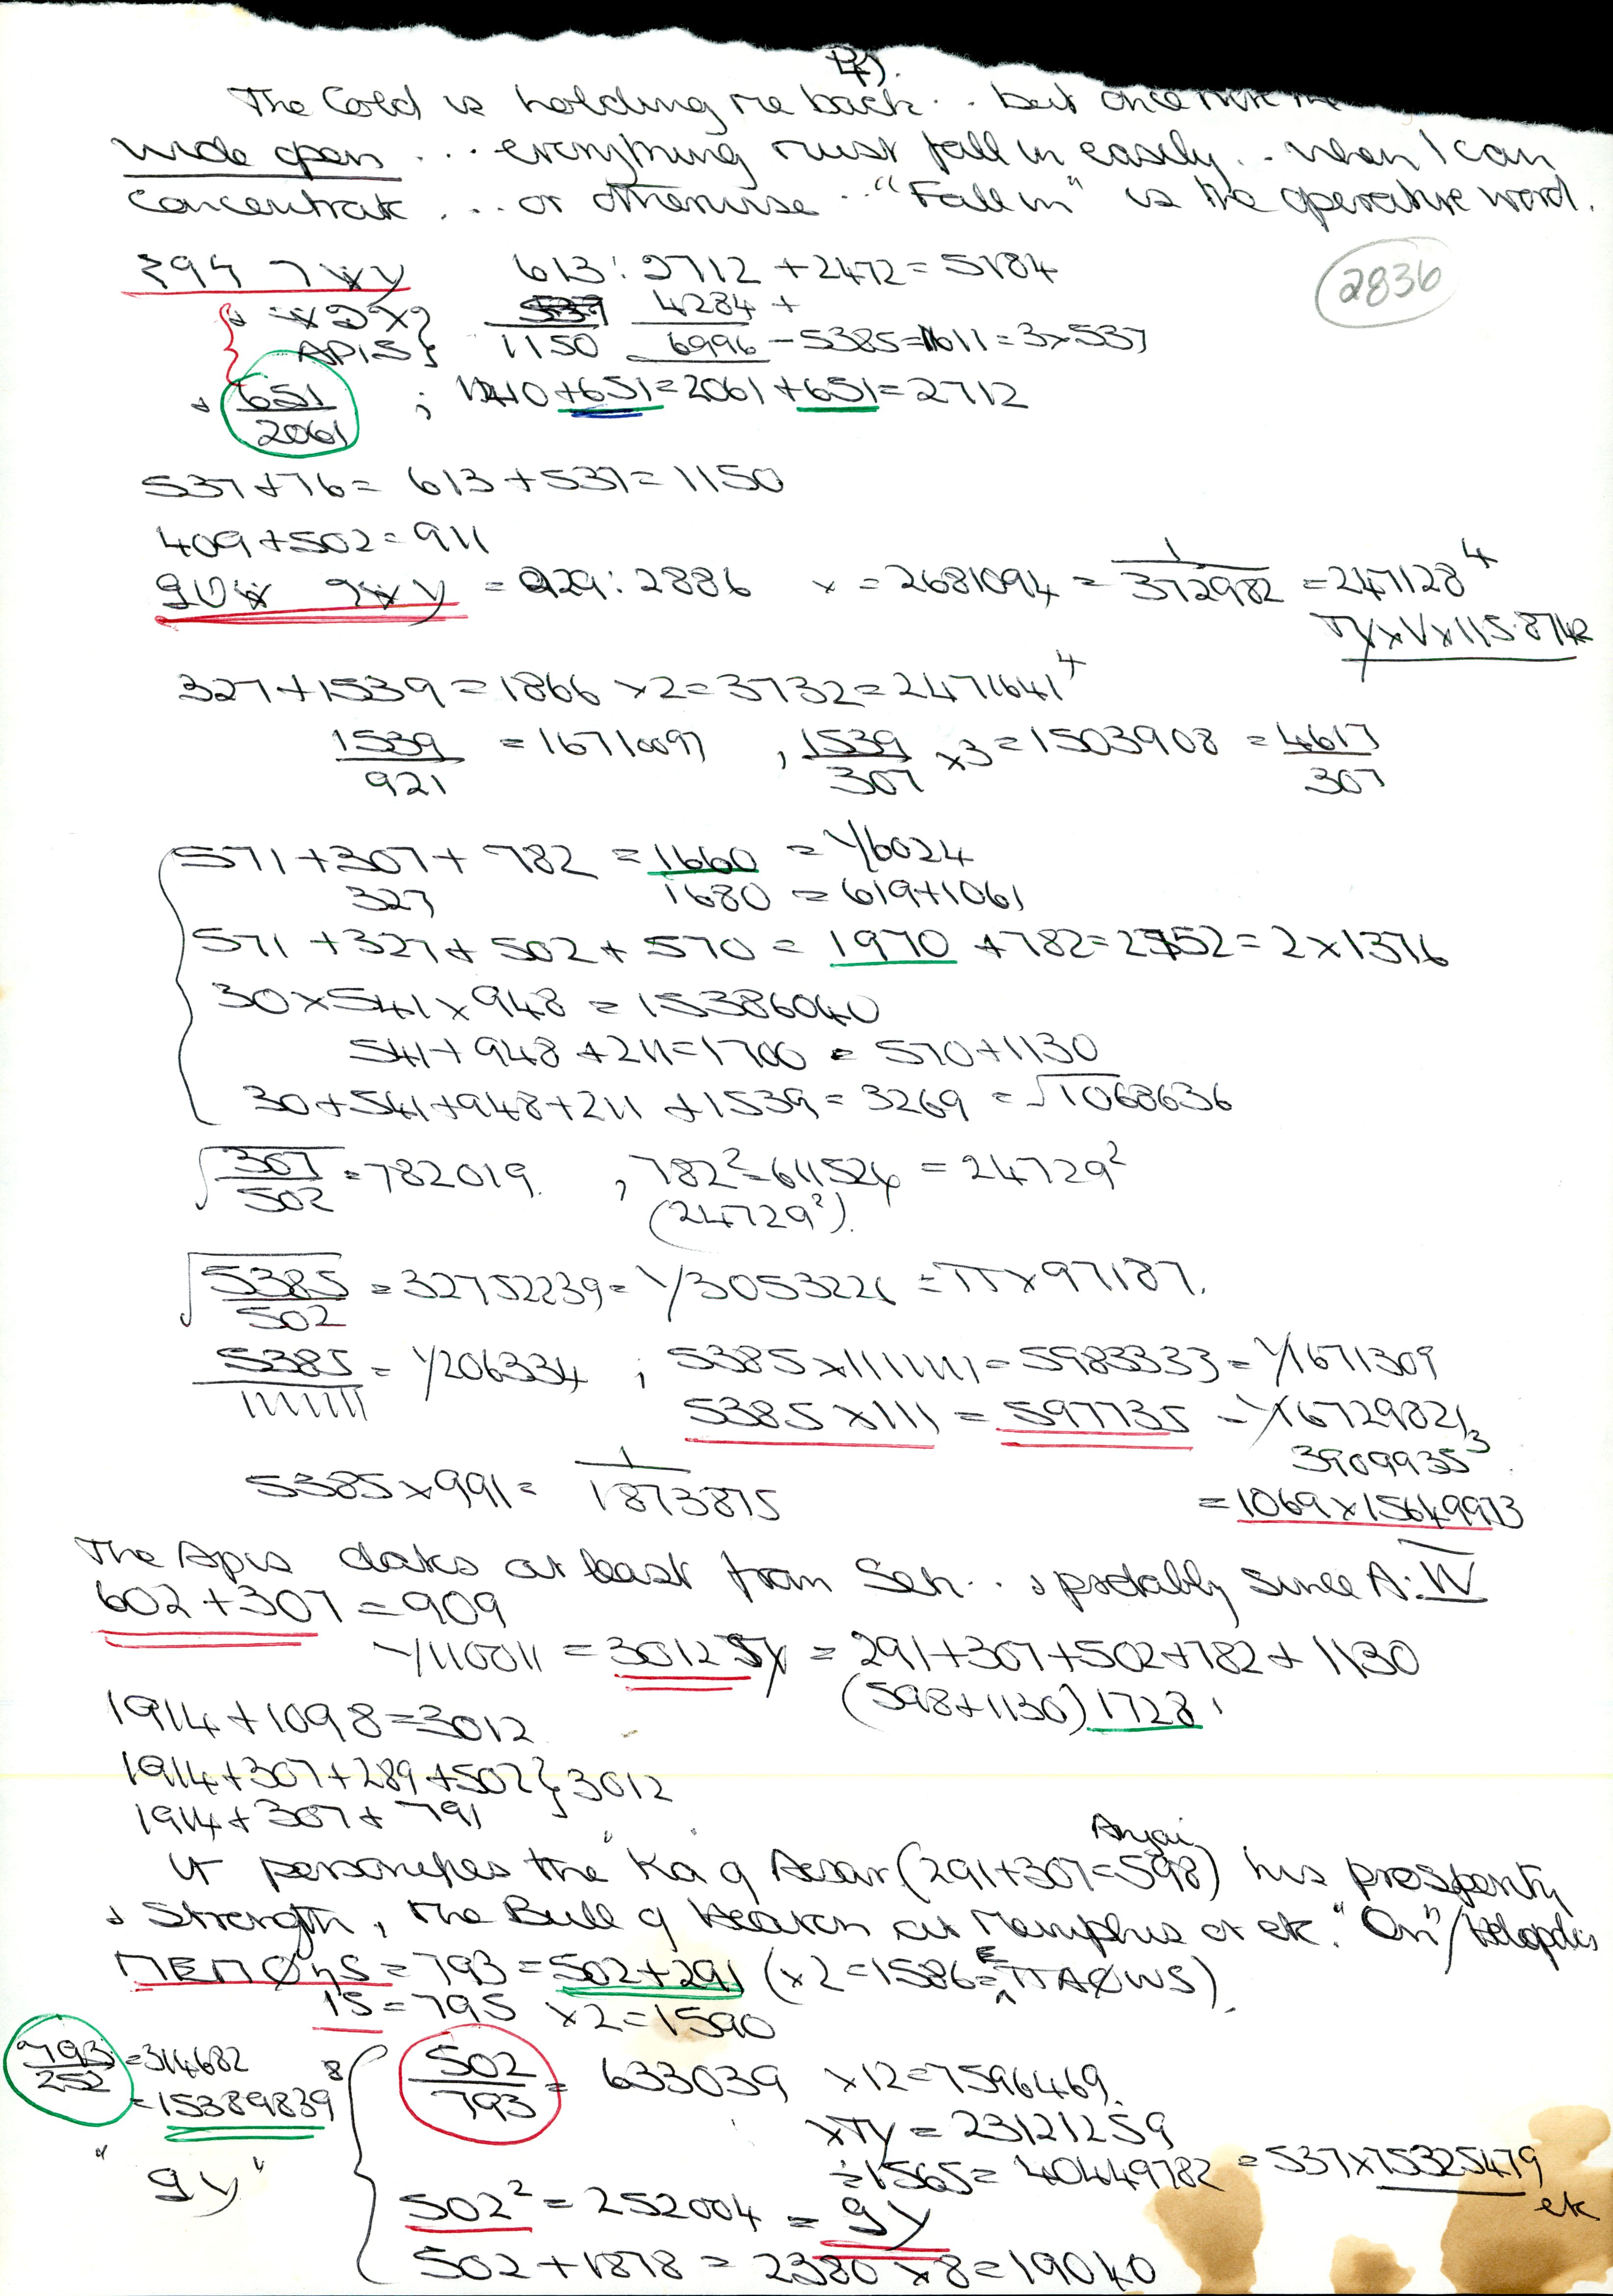 The Cold is holding me back .. but once more the
wide open ... everything must fall in easily .. when I can
concentrate ... or otherwise .. "Fall in" is the operative word.
2836
613 : 2712 + 2472 = 5184
537 4284 +
APIS } 1150 6996 - 5385 = 1611 = 3 x 537
651 ; 1410 + 651 = 2061 + 651 = 2712
2061
537 + 76 = 613 + 537 = 1150
409 + 502 = 911
= 929 : 2886 x = 2681094 = 1/372982 = 247128⁴
327 + 1539 = 1866 x 2 = 3732 = 2471641⁴
1539/921 = 16710097 , 1539/307 x 3 = 1503908 = 4617/307
571 + 307 + 782 = 1660 = 1/6024
327 1680 = 619 + 1061
571 + 327 + 502 + 570 = 1970 + 782 = 2752 = 2 x 1376
30 x 541 x 948 = 15386040
541 + 948 + 211 = 1700 = 570 + 1130
30 + 541 + 948 + 211 + 1539 = 3269 = √1068636
√307/502 = 782019. , 782² = 611524 = 24729²
(24729²).
√5385/502 = 32752239 = 1/3053226 = π x 97187.
5385/1111111 = 1/206334 ; 5385 x 1111111 = 5983333 = 1/1671309
5385 x 111 = 597735 = 1/16729821
3909935³
5385 x 991 = 1/1873875
= 1069 x 15649973
The Apis dates at least from Seh .. & probably since A: IV
602 + 307 = 909
1/110011 = 3012 = 291 + 307 + 502 + 782 + 1130
(598 + 1130) 1728
1914 + 1098 = 3012
1914 + 307 + 289 + 502 } 3012
1914 + 307 + 791
It personifies the "Ka" of Asar (291 + 307 = 598) his prosperity
& strength, the Bull of Heaven at Memphis or etc. "On"/
= 793 = 502 + 291 (x 2 = 1586 =
15 = 795 x 2 = 1590
793/252 = 314682
= 15389839
502/793 = 633039 x 12 = 7596469.
= 23121259
÷ 1565 = 40449782 = 537 x 75325479
etc
502² = 252004 = gy
"gy"
502 + 1878 = 2380 x 8 = 19040